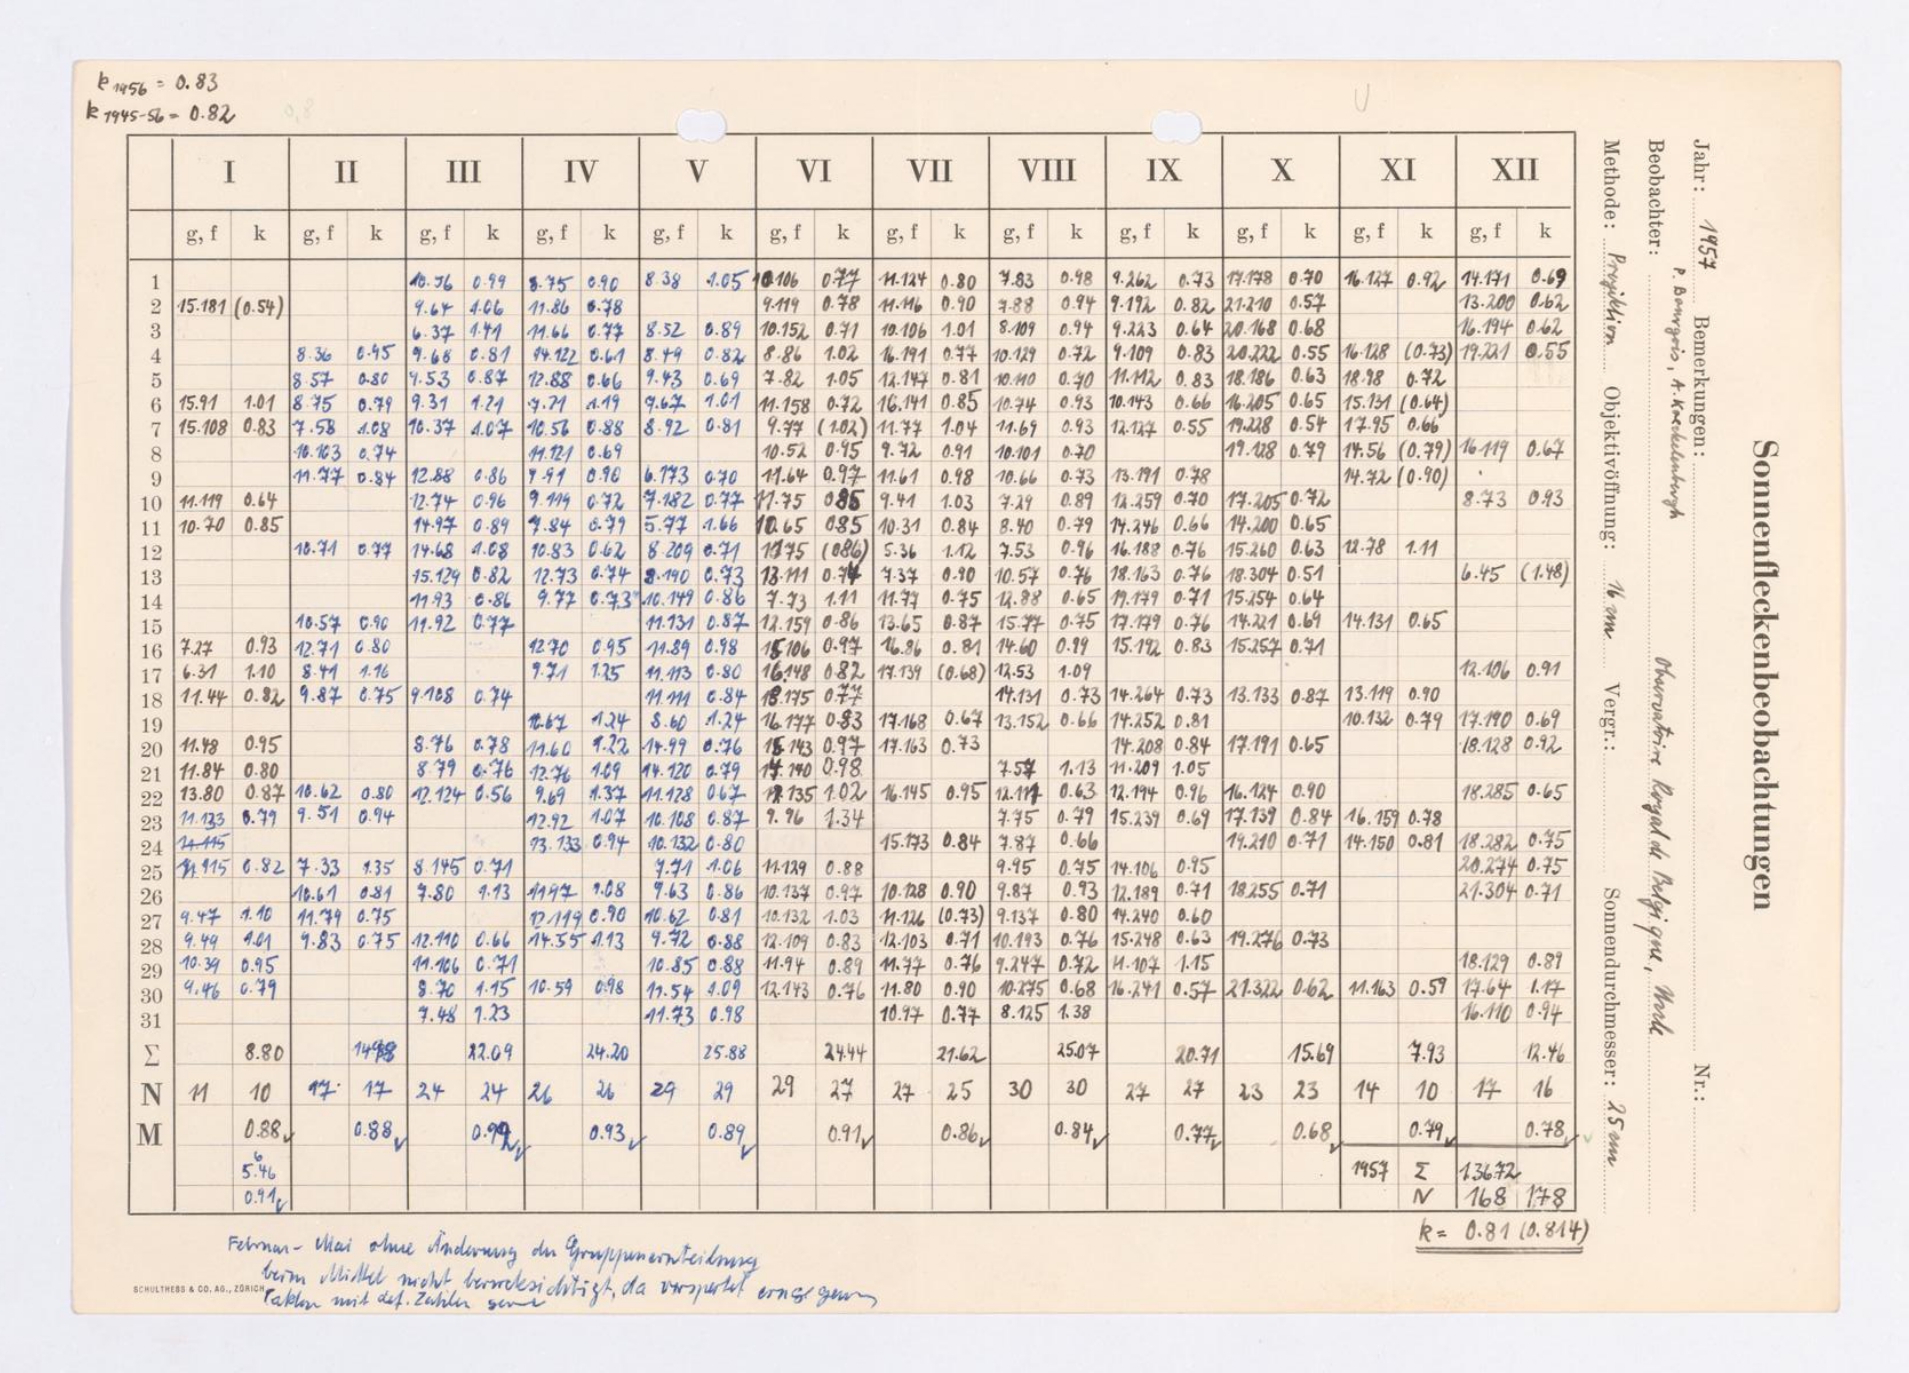 k 1956 = 0.83
k 1945-56 = 0.82
Sonnenfleckenbeobachtungen
Jahr: 1957 Bemerkungen: Nr.:
Beobachter: P. Bourgois, A. Koeckelenbergh Observatoire Royal de Belgique, Uccle
Methode: Projektion Objektivöffnung: 16 cm Vergr.: Sonnendurchmesser: 25 cm
I II III IV V VI VII VIII IX X XI XII
g, f k g, f k g, f k g, f k g, f k g, f k g, f k g, f k g, f k g, f k g, f k g, f k
1 10.76 0.99 8.75 0.90 8.38 1.05 10.106 0.77 11.124 0.80 7.83 0.98 9.262 0.73 17.178 0.70 16.127 0.92 14.171 0.69
2 15.181 (0.54) 9.64 1.06 11.86 0.78 9.119 0.78 11.116 0.90 7.88 0.94 9.192 0.82 21.210 0.57 13.200 0.62
3 6.37 1.41 11.66 0.77 8.52 0.89 10.152 0.71 10.106 1.01 8.109 0.94 9.223 0.64 20.168 0.68 16.194 0.62
4 8.36 0.95 9.68 0.81 14.122 0.61 8.49 0.82 8.86 1.02 16.191 0.77 10.129 0.72 9.109 0.83 20.222 0.55 16.128 (0.73) 19.221 0.55
5 8.57 0.80 9.53 0.87 12.88 0.66 9.43 0.69 7.82 1.05 12.147 0.81 10.110 0.70 11.112 0.83 18.186 0.63 18.98 0.72
6 15.91 1.01 8.75 0.79 9.31 1.21 7.21 1.19 9.67 1.01 11.158 0.72 16.141 0.85 10.74 0.93 10.143 0.66 16.205 0.65 15.131 (0.64)
7 15.108 0.83 7.58 1.08 10.37 1.07 10.56 0.88 8.92 0.81 9.77 (1.02) 11.77 1.04 11.69 0.93 12.127 0.55 19.228 0.54 17.95 0.66
8 10.103 0.74 11.121 0.69 10.52 0.95 9.72 0.91 10.101 0.70 19.128 0.79 14.56 (0.79) 16.119 0.67
9 11.77 0.84 12.88 0.86 9.91 0.90 6.173 0.70 11.64 0.97 11.61 0.98 10.66 0.73 13.191 0.78 14.72 (0.90)
10 11.119 0.64 12.74 0.96 9.119 0.72 7.182 0.77 11.75 0.85 9.41 1.03 7.29 0.89 12.259 0.70 17.205 0.72 8.73 0.93
11 10.70 0.85 14.97 0.89 7.84 0.79 5.77 1.66 10.65 0.85 10.31 0.84 8.40 0.79 14.246 0.66 14.200 0.65
12 10.71 0.77 14.68 1.08 10.83 0.62 8.209 0.71 11.75 (0.86) 5.36 1.12 7.53 0.96 16.188 0.76 15.260 0.63 12.78 1.11
13 15.129 0.82 12.73 0.74 8.190 0.73 13.111 0.74 7.37 0.90 10.57 0.76 18.163 0.76 18.304 0.51 6.45 (1.48)
14 11.93 0.86 9.77 0.73 10.149 0.86 7.73 1.11 11.77 0.75 12.88 0.65 19.179 0.71 15.254 0.64
15 10.57 0.90 11.92 0.77 11.131 0.87 12.159 0.86 13.65 0.87 15.77 0.75 17.179 0.76 14.221 0.69 14.131 0.65
16 7.27 0.93 12.71 0.80 12.70 0.95 11.89 0.98 15.106 0.97 16.86 0.81 14.60 0.99 15.192 0.83 15.257 0.71
17 6.31 1.10 8.41 1.16 9.71 1.25 11.113 0.80 16.148 0.82 17.139 (0.68) 12.53 1.09 12.106 0.91
18 11.44 0.82 9.87 0.75 9.108 0.74 11.111 0.84 18.175 0.77 14.131 0.73 14.264 0.73 13.133 0.87 13.119 0.90
19 10.67 1.24 8.60 1.24 16.177 0.83 17.168 0.67 13.152 0.66 14.252 0.81 10.132 0.79 17.190 0.69
20 11.48 0.95 8.76 0.78 11.60 1.22 14.99 0.76 15.143 0.97 17.163 0.73 14.208 0.84 17.191 0.65 18.128 0.92
21 11.84 0.80 8.79 0.76 12.76 1.09 14.120 0.79 14.140 0.98 7.57 1.13 11.209 1.05
22 13.80 0.87 10.62 0.80 12.124 0.56 9.69 1.37 11.128 0.67 12.135 1.02 16.145 0.95 12.117 0.63 12.194 0.96 16.124 0.90 18.285 0.65
23 11.133 0.79 9.51 0.94 12.92 1.07 10.108 0.87 9.96 1.34 7.75 0.79 15.239 0.69 17.139 0.84 16.159 0.78
24 11.115 13.133 0.94 10.132 0.80 15.173 0.84 7.87 0.66 19.210 0.71 14.150 0.81 18.282 0.75
25 11.115 0.82 7.33 1.35 8.145 0.71 7.71 1.06 11.129 0.88 9.95 0.75 14.106 0.95 20.274 0.75
26 10.61 0.81 7.80 1.13 11.97 1.08 9.63 0.86 10.137 0.97 10.128 0.90 9.87 0.93 12.189 0.71 18.255 0.71 21.304 0.71
27 9.47 1.10 11.79 0.75 12.119 0.90 10.62 0.81 10.132 1.03 11.126 (0.73) 9.137 0.80 14.240 0.60
28 9.49 1.01 9.83 0.75 12.110 0.66 14.55 1.13 9.72 0.88 12.109 0.83 12.103 0.71 10.193 0.76 15.248 0.63 19.276 0.73
29 10.39 0.95 11.106 0.71 10.85 0.88 11.94 0.89 11.77 0.76 9.247 0.72 11.107 1.15 18.129 0.89
30 9.46 0.79 8.70 1.15 10.59 0.98 11.54 1.09 12.143 0.76 11.80 0.90 10.275 0.68 16.241 0.57 21.322 0.62 11.163 0.59 17.64 1.17
31 7.48 1.23 11.73 0.98 10.97 0.77 8.125 1.38 16.110 0.94
Σ 8.80 14.98 22.09 24.20 25.88 24.44 21.62 25.07 20.71 15.69 7.93 12.46
N 11 10 17 17 24 24 26 26 29 29 29 27 27 25 30 30 27 27 23 23 14 10 17 16
M 0.88 0.88 0.92 0.93 0.89 0.91 0.86 0.84 0.77 0.68 0.79 0.78
6
5.46 1957 Σ 136.72
0.91 N 168 178
k = 0.81 (0.814)
Februar - Mai ohne Änderung der Gruppeneinteilung
beim Mittel nicht berücksichtigt, da verspätet eingegangen
Faktor mit def. Zahlen
SCHULTHESS & CO. AG., ZÜRICH